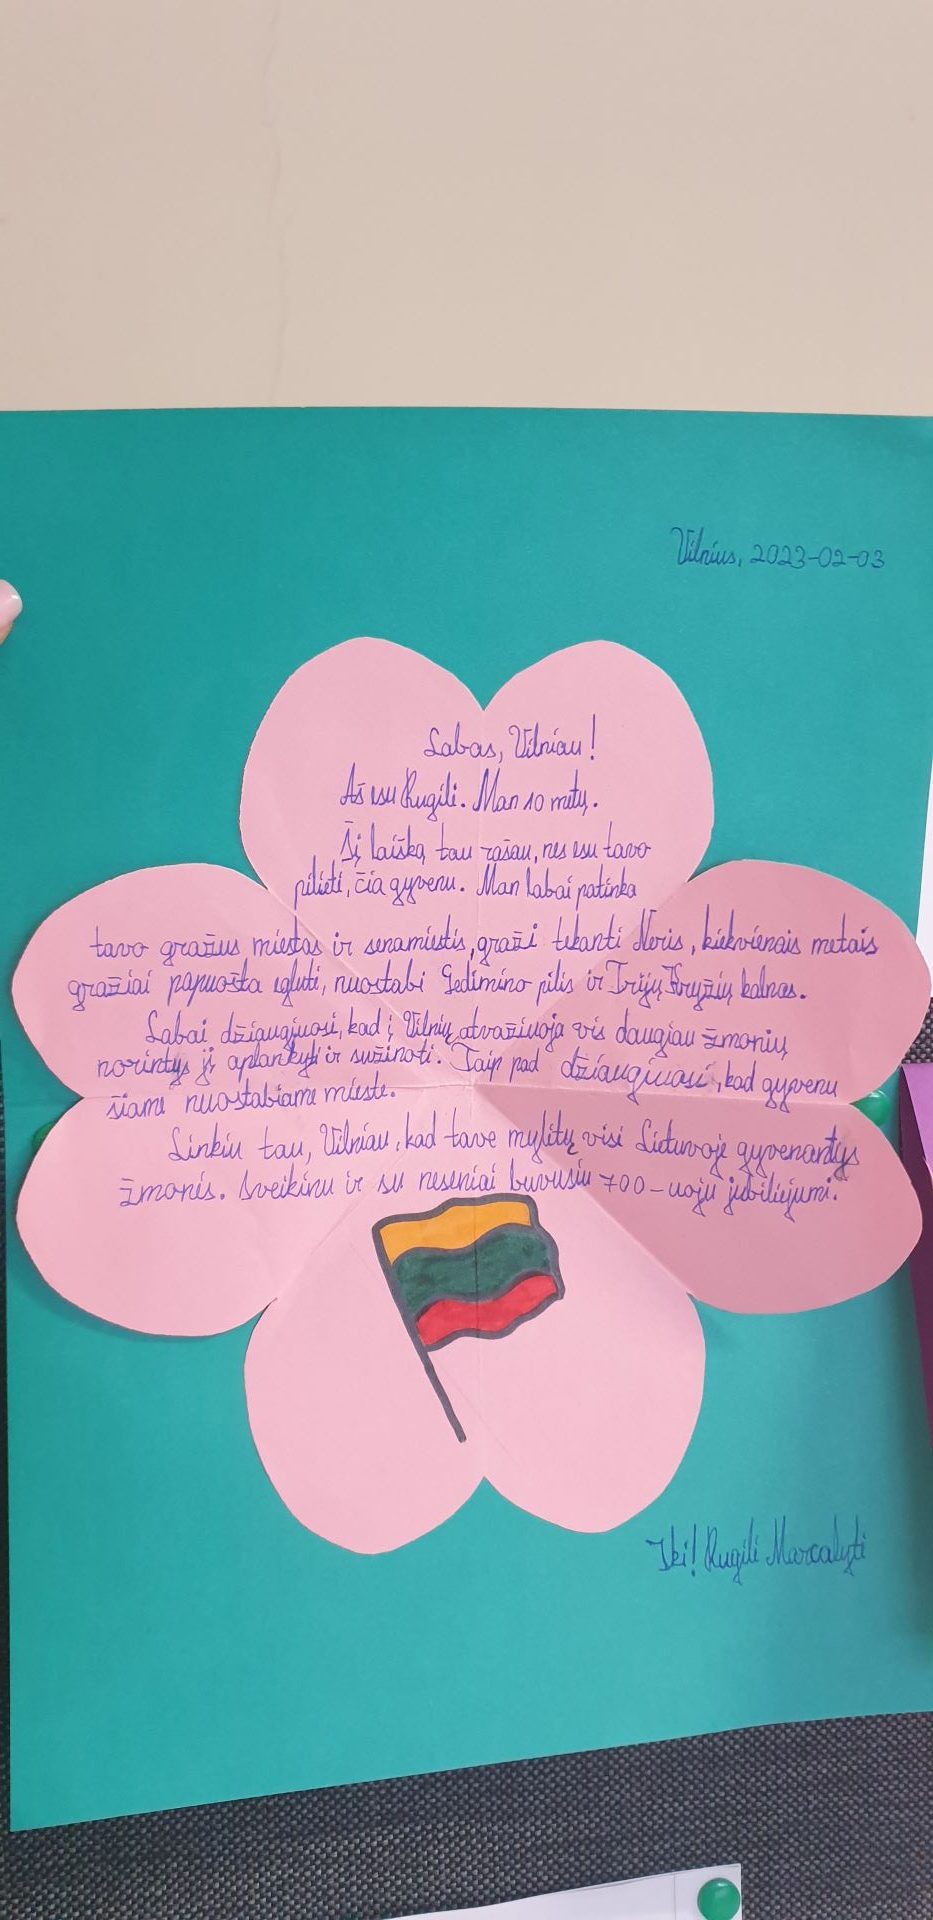 Vilnius, 2023-02-03
Labas, Vilniau!
Aš esu Rugilė. Man 10 metų.
Šį laišką tau rašau, nes esu tavo
pilietė, čia gyvenu. Man labai patinka
tavo gražus miestas ir senamiestis, graži tekanti Neris, kiekvienais metais
gražiai papuošta eglutė, nuostabi Gedimino pilis ir Trijų Kryžių kalnas.
Labai džiaugiuosi, kad į Vilnių atvažiuoja vis daugiau žmonių
norintys jį aplankyti ir sužinoti. Taip pad džiaugiuosi, kad gyvenu
šiame nuostabiame mieste.
Linkiu tau, Vilniau, kad tave mylėtų visi Lietuvoje gyvenantys
žmonės. Sveikinu ir su neseniai buvusiu 700-uoju jubiliejumi.
Iki! Rugilė Marcalytė